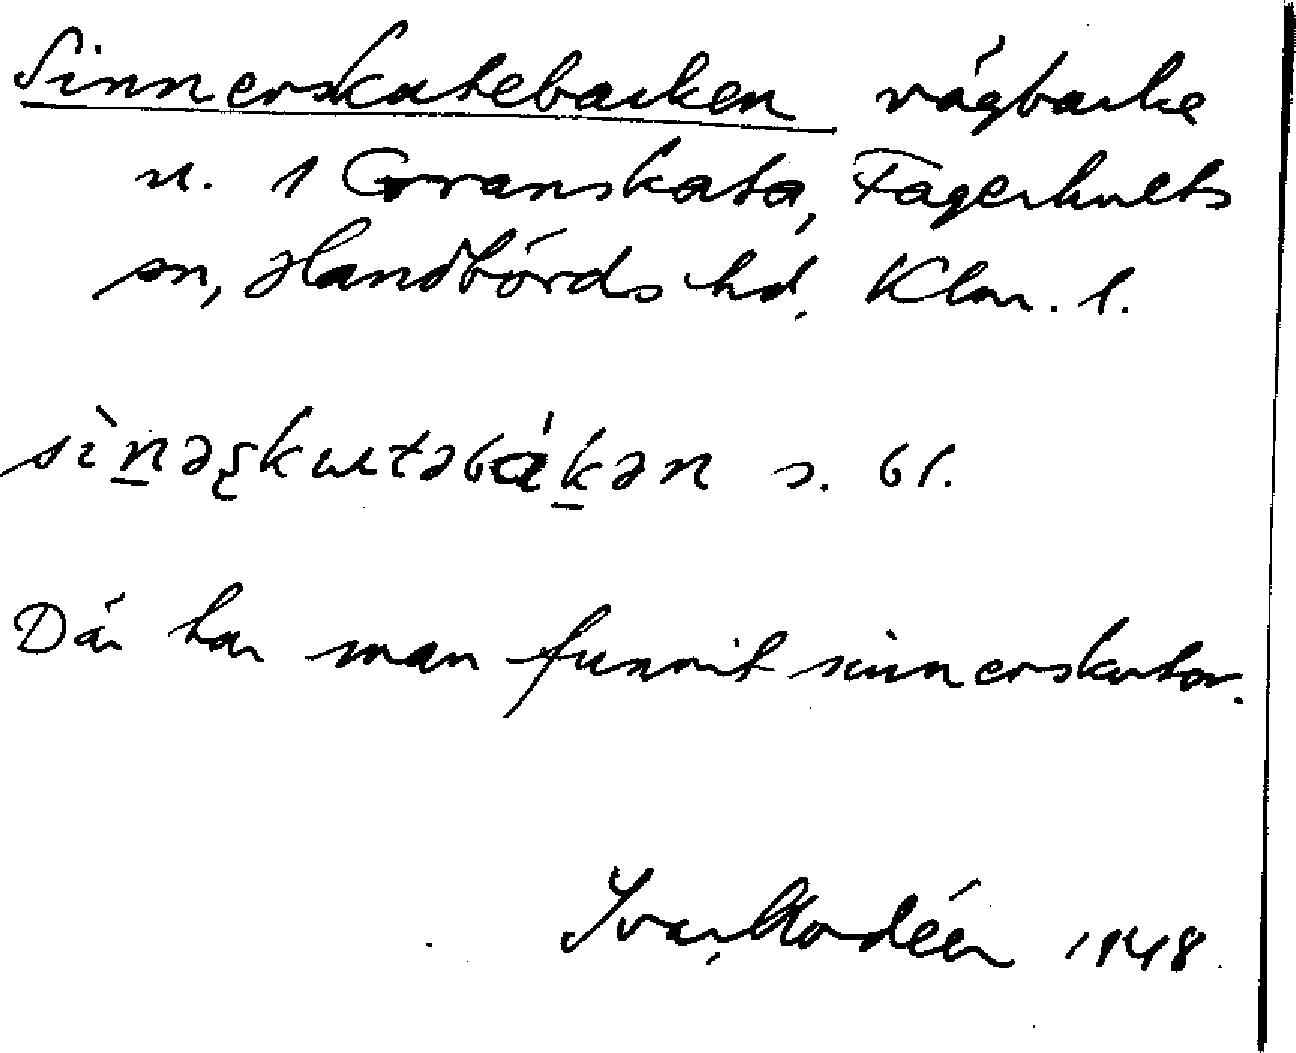 Sinnerskatebacken vägbacke
n. 1 Granskata, Fagerhults
sn, Handbörds hd, Klm. l.
s. bf.
Där har man funnit sinnerskator.
Ivar Modéer 1948